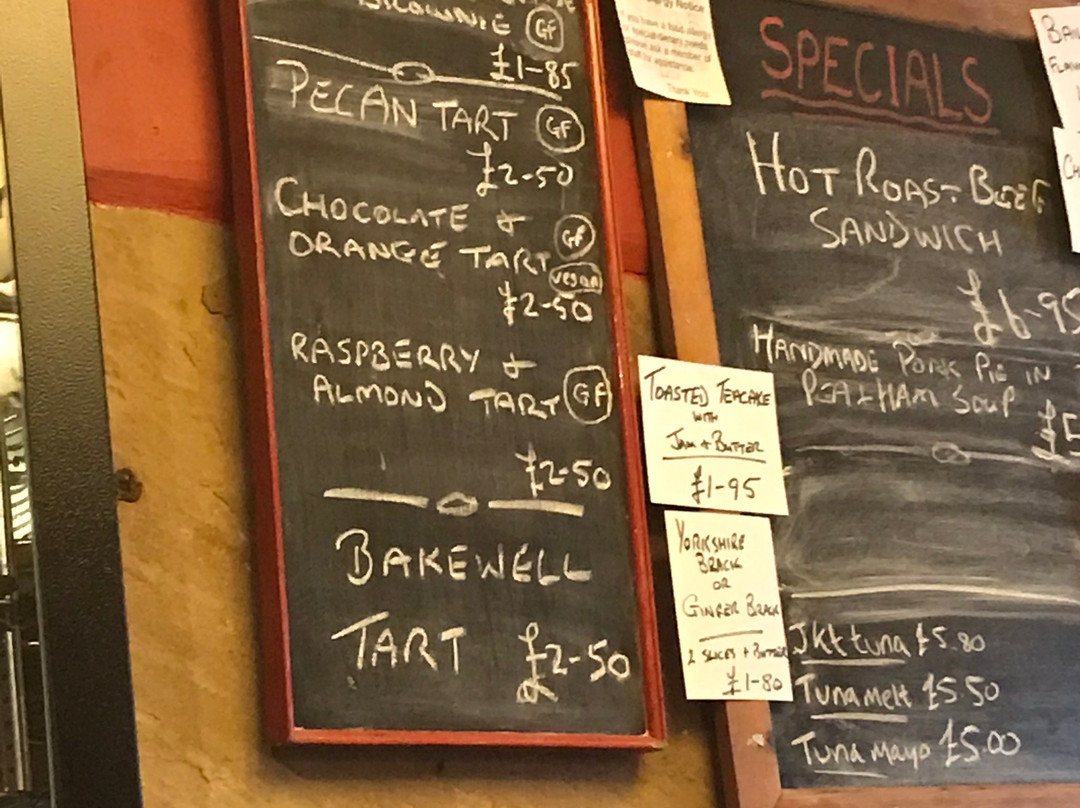 BROWNIE GF
£1-85
PECAN TART GF
£2-50
CHOCOLATE &
ORANGE TART GF
vegan
£2-50
RASPBERRY &
ALMOND TART GF
£2-50
BAKEWELL
TART £2-50
Notice
you have a food allergy
Thank You
TOASTED TEACAKE
WITH
JAM + BUTTER
£1-95
YORKSHIRE
BRACK
OR
GINGER BRACK
2 SLICES + BUTTER
£1-80
SPECIALS
HOT ROAST BEEF
SANDWICH
£6-95
HANDMADE PORK PIE IN
PEA & HAM SOUP
£5
Jkt tuna £5.80
Tuna melt £5.50
Tuna mayo £5.00